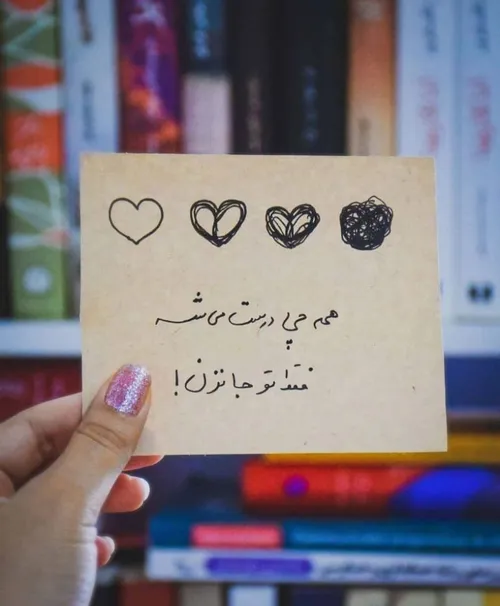 همه چی درست می‌شه
فقط تو جا نزن!